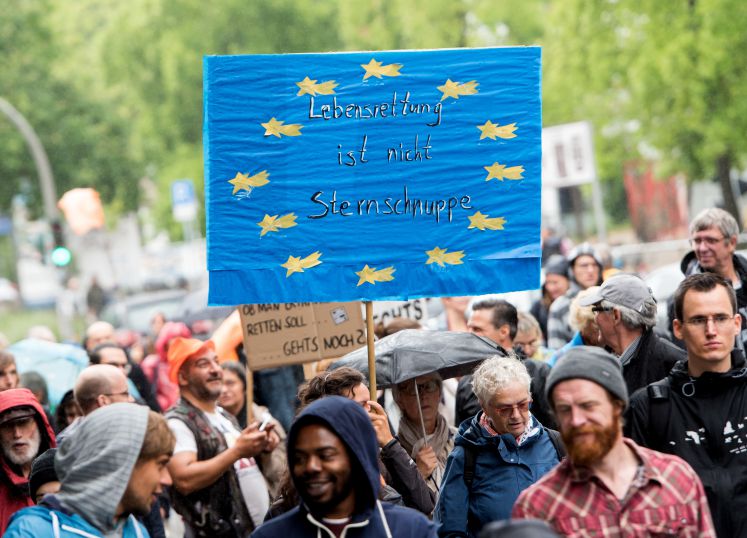 Lebensrettung
ist nicht
Sternschnuppe
RETTEN SOLL
GEHTS NOCH?